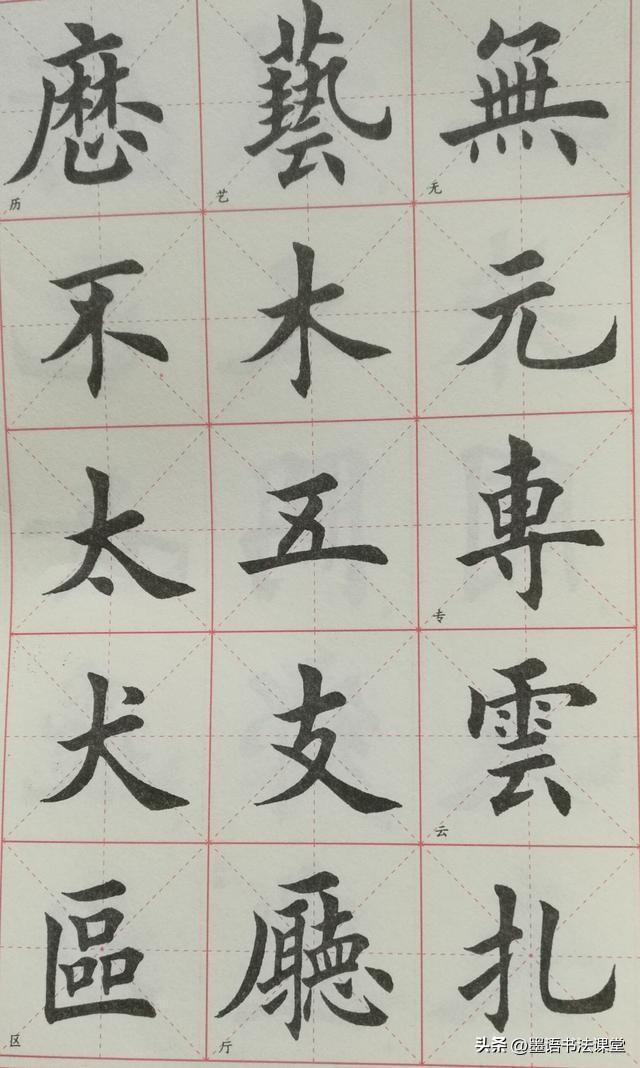 無 无
元
専 专
雲 云
扎
藝 艺
木
五
支
廳 厅
历
不
太
犬
區 区
头条 @墨语书法课堂